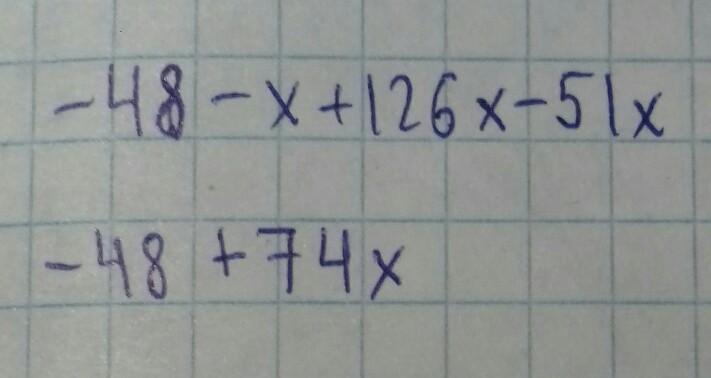 -48 - x + 126x - 51x
-48 + 74x